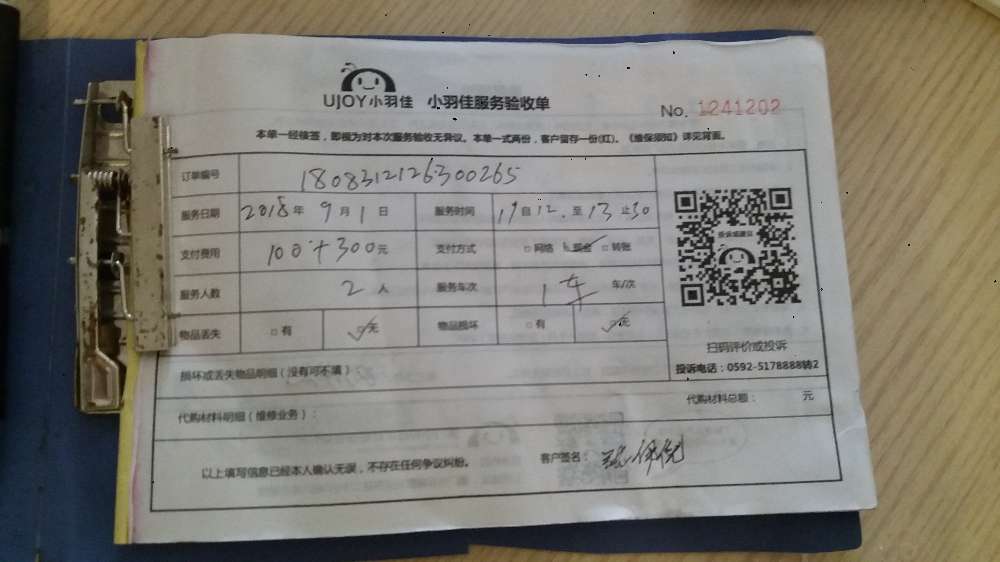 UJOY小羽佳 小羽佳服务验收单
No. 1241202
本单一经接签，即视为对本次服务验收无异议。本单一式两份，客户留存一份(红)。《维保须知》详见背面。
订单编号 1808312126300265
服务日期 2018年9月1日 服务时间 12. 至 13 止30
支付费用 100+300元 支付方式 □网络 □现金 □转账
服务人数 2人 服务车次 1车 车/次
物品丢失 □有 □无 物品损坏 □有 □无
投诉或建议
扫码评价或投诉
投诉电话：0592-5178888转2
损坏或丢失物品明细（没有可不填）
代购材料明细（维修业务）： 代购材料总额： 元
以上填写信息已经本人确认无误，不存在任何争议纠纷。 客户签名：